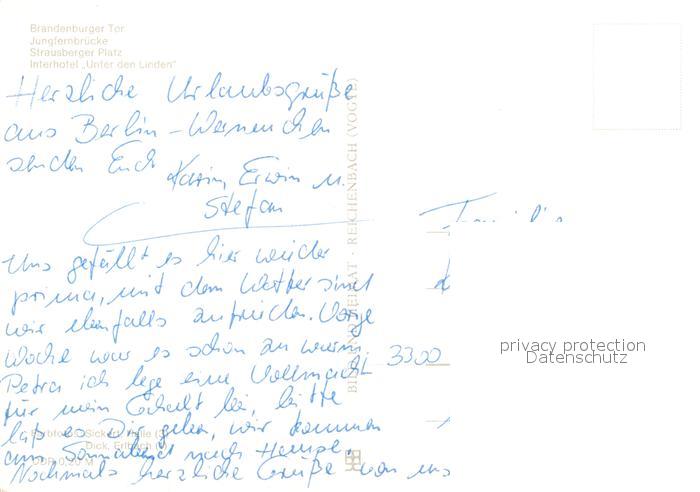 Brandenburger Tor
Jungfernbrücke
Strausberger Platz
Interhotel „Unter den Linden"
Herzliche Urlaubsgrüße
aus Berlin-Werneuchen
senden Euch Karin, Erwin u.
Stefan
Uns gefällt es hier wieder
prima, mit dem Wetter sind
wir ebenfalls zufrieden. Vorige
Woche war es schon zu warm.
Petra ich lege eine Vollmacht
für mein Gehalt bei, bitte
laß es Dir geben, wir kommen
am Sonnabend nach Hause.
Nochmals herzliche Grüße von uns
REICHENBACH (VOGTL)
Familie
3300
privacy protection
Datenschutz
Dick, Erlbach
DDR 0,20 M